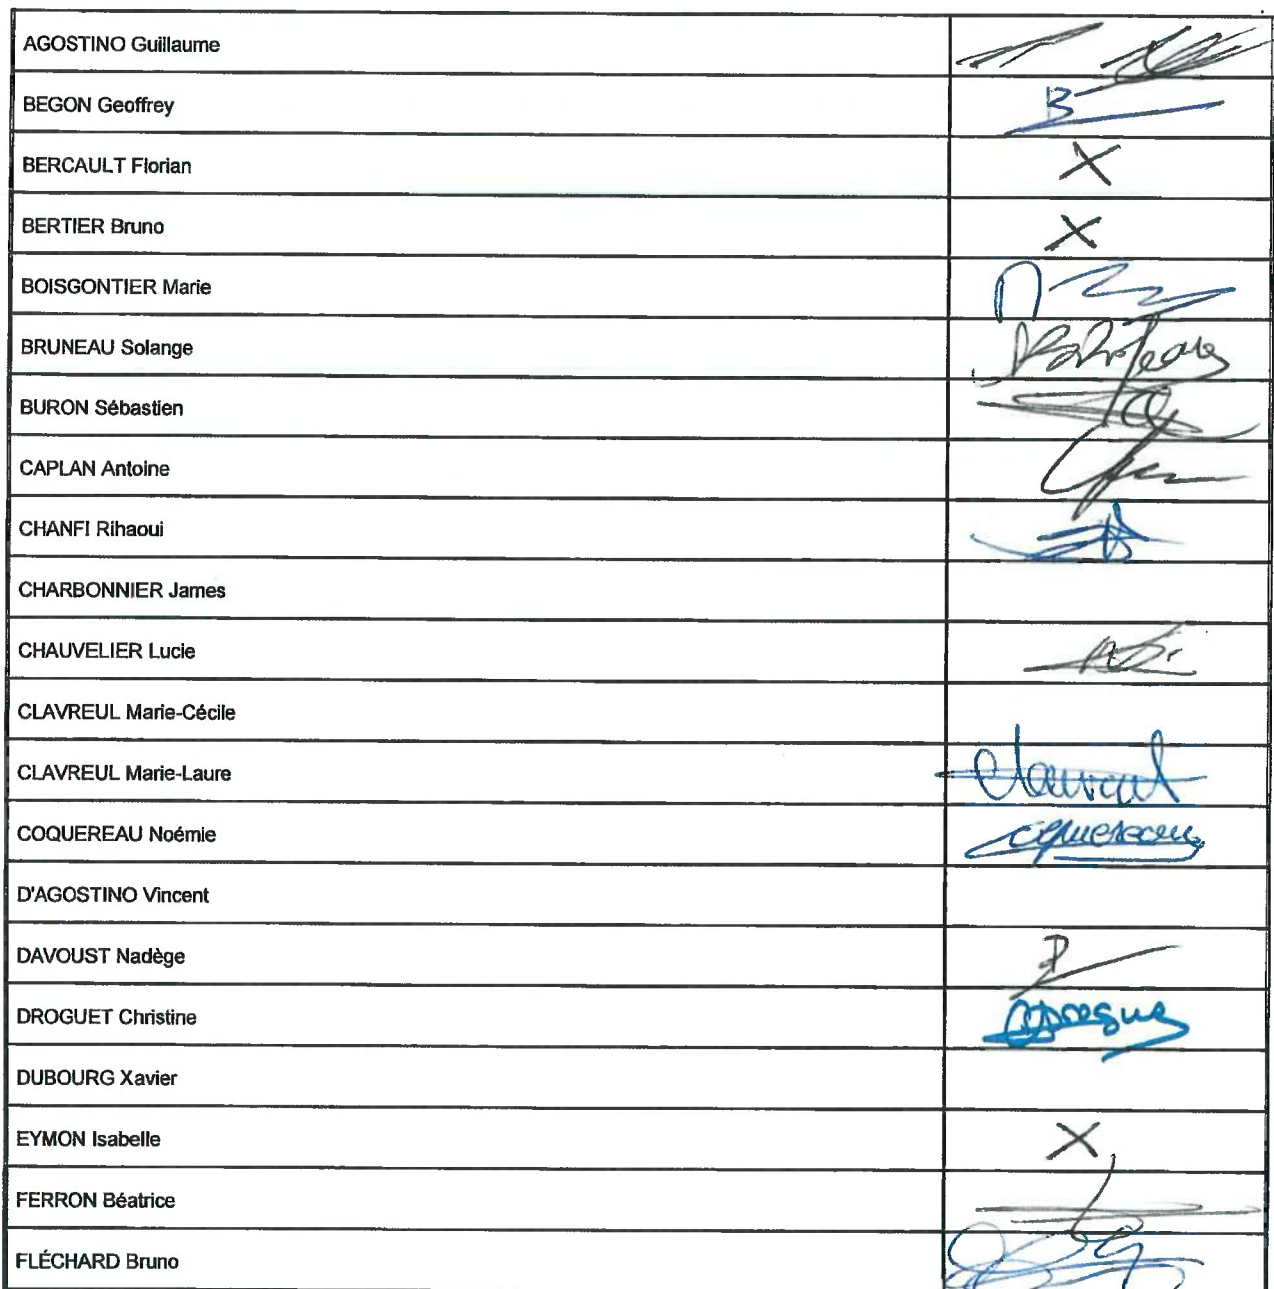 AGOSTINO Guillaume
BEGON Geoffrey
B
BERCAULT Florian
X
BERTIER Bruno
X
BOISGONTIER Marie
BRUNEAU Solange
BURON Sébastien
CAPLAN Antoine
CHANFI Rihaoui
CHARBONNIER James
CHAUVELIER Lucie
CLAVREUL Marie-Cécile
CLAVREUL Marie-Laure
Clavreul
COQUEREAU Noémie
Coquereau
D'AGOSTINO Vincent
DAVOUST Nadège
DROGUET Christine
DUBOURG Xavier
EYMON Isabelle
X
FERRON Béatrice
FLÉCHARD Bruno